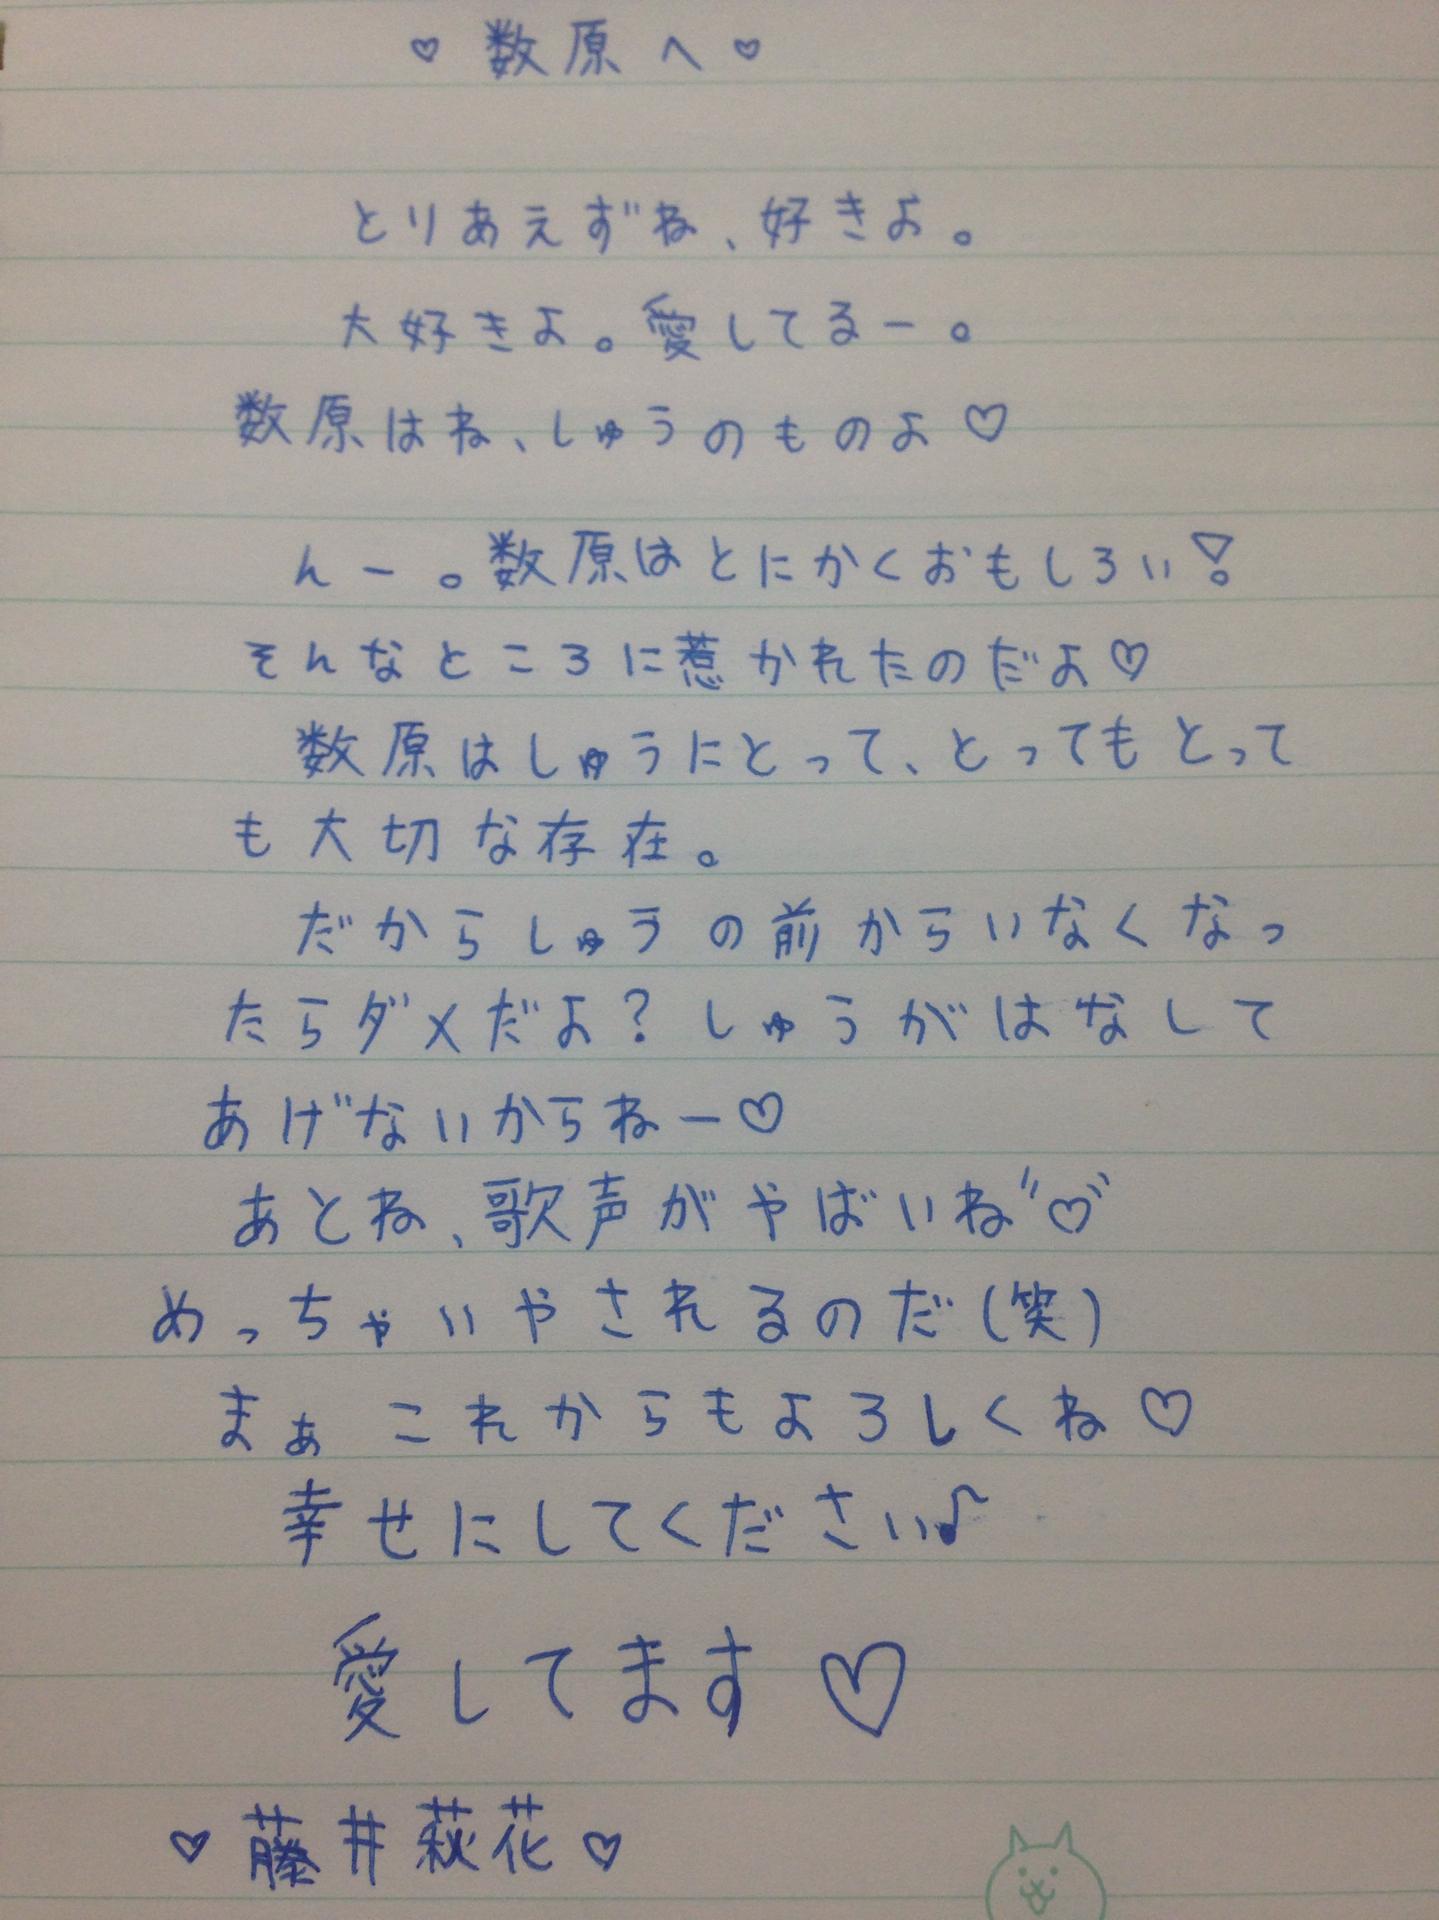 ♡ 数原へ ♡
とりあえずね、好きよ。
大好きよ。愛してるー。
数原はね、しゅうのものよ♡
んー。数原はとにかくおもしろい!
そんなところに惹かれたのだよ♡
数原はしゅうにとって、とってもとって
も大切な存在。
だからしゅうの前からいなくなっ
たらダメだよ?しゅうがはなして
あげないからねー♡
あとね、歌声がやばいね〃♡〃
めっちゃいやされるのだ(笑)
まぁこれからもよろしくね♡
幸せにしてください♪
愛してます♡
♡藤井萩花♡